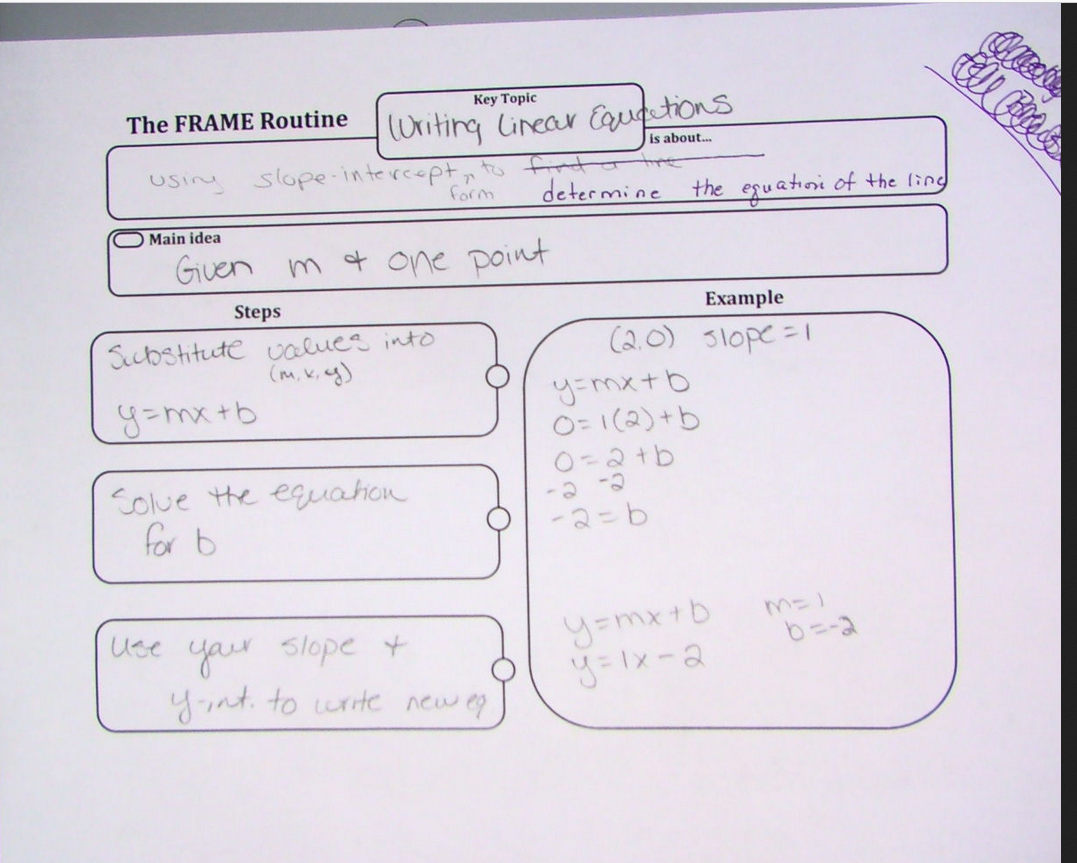 Key Topic
The FRAME Routine
Writing Linear Equations
is about...
using slope-intercept, to find a line
form determine the equation of the line
Main idea
Given m & one point
Steps
Example
Substitute values into
(m, x, y)
y=mx+b
Solve the equation
for b
Use your slope &
y-int. to write new eq
(2,0) slope=1
y=mx+b
0=1(2)+b
0=2+b
-2 -2
-2=b
y=mx+b m=1
b=-2
y=1x-2